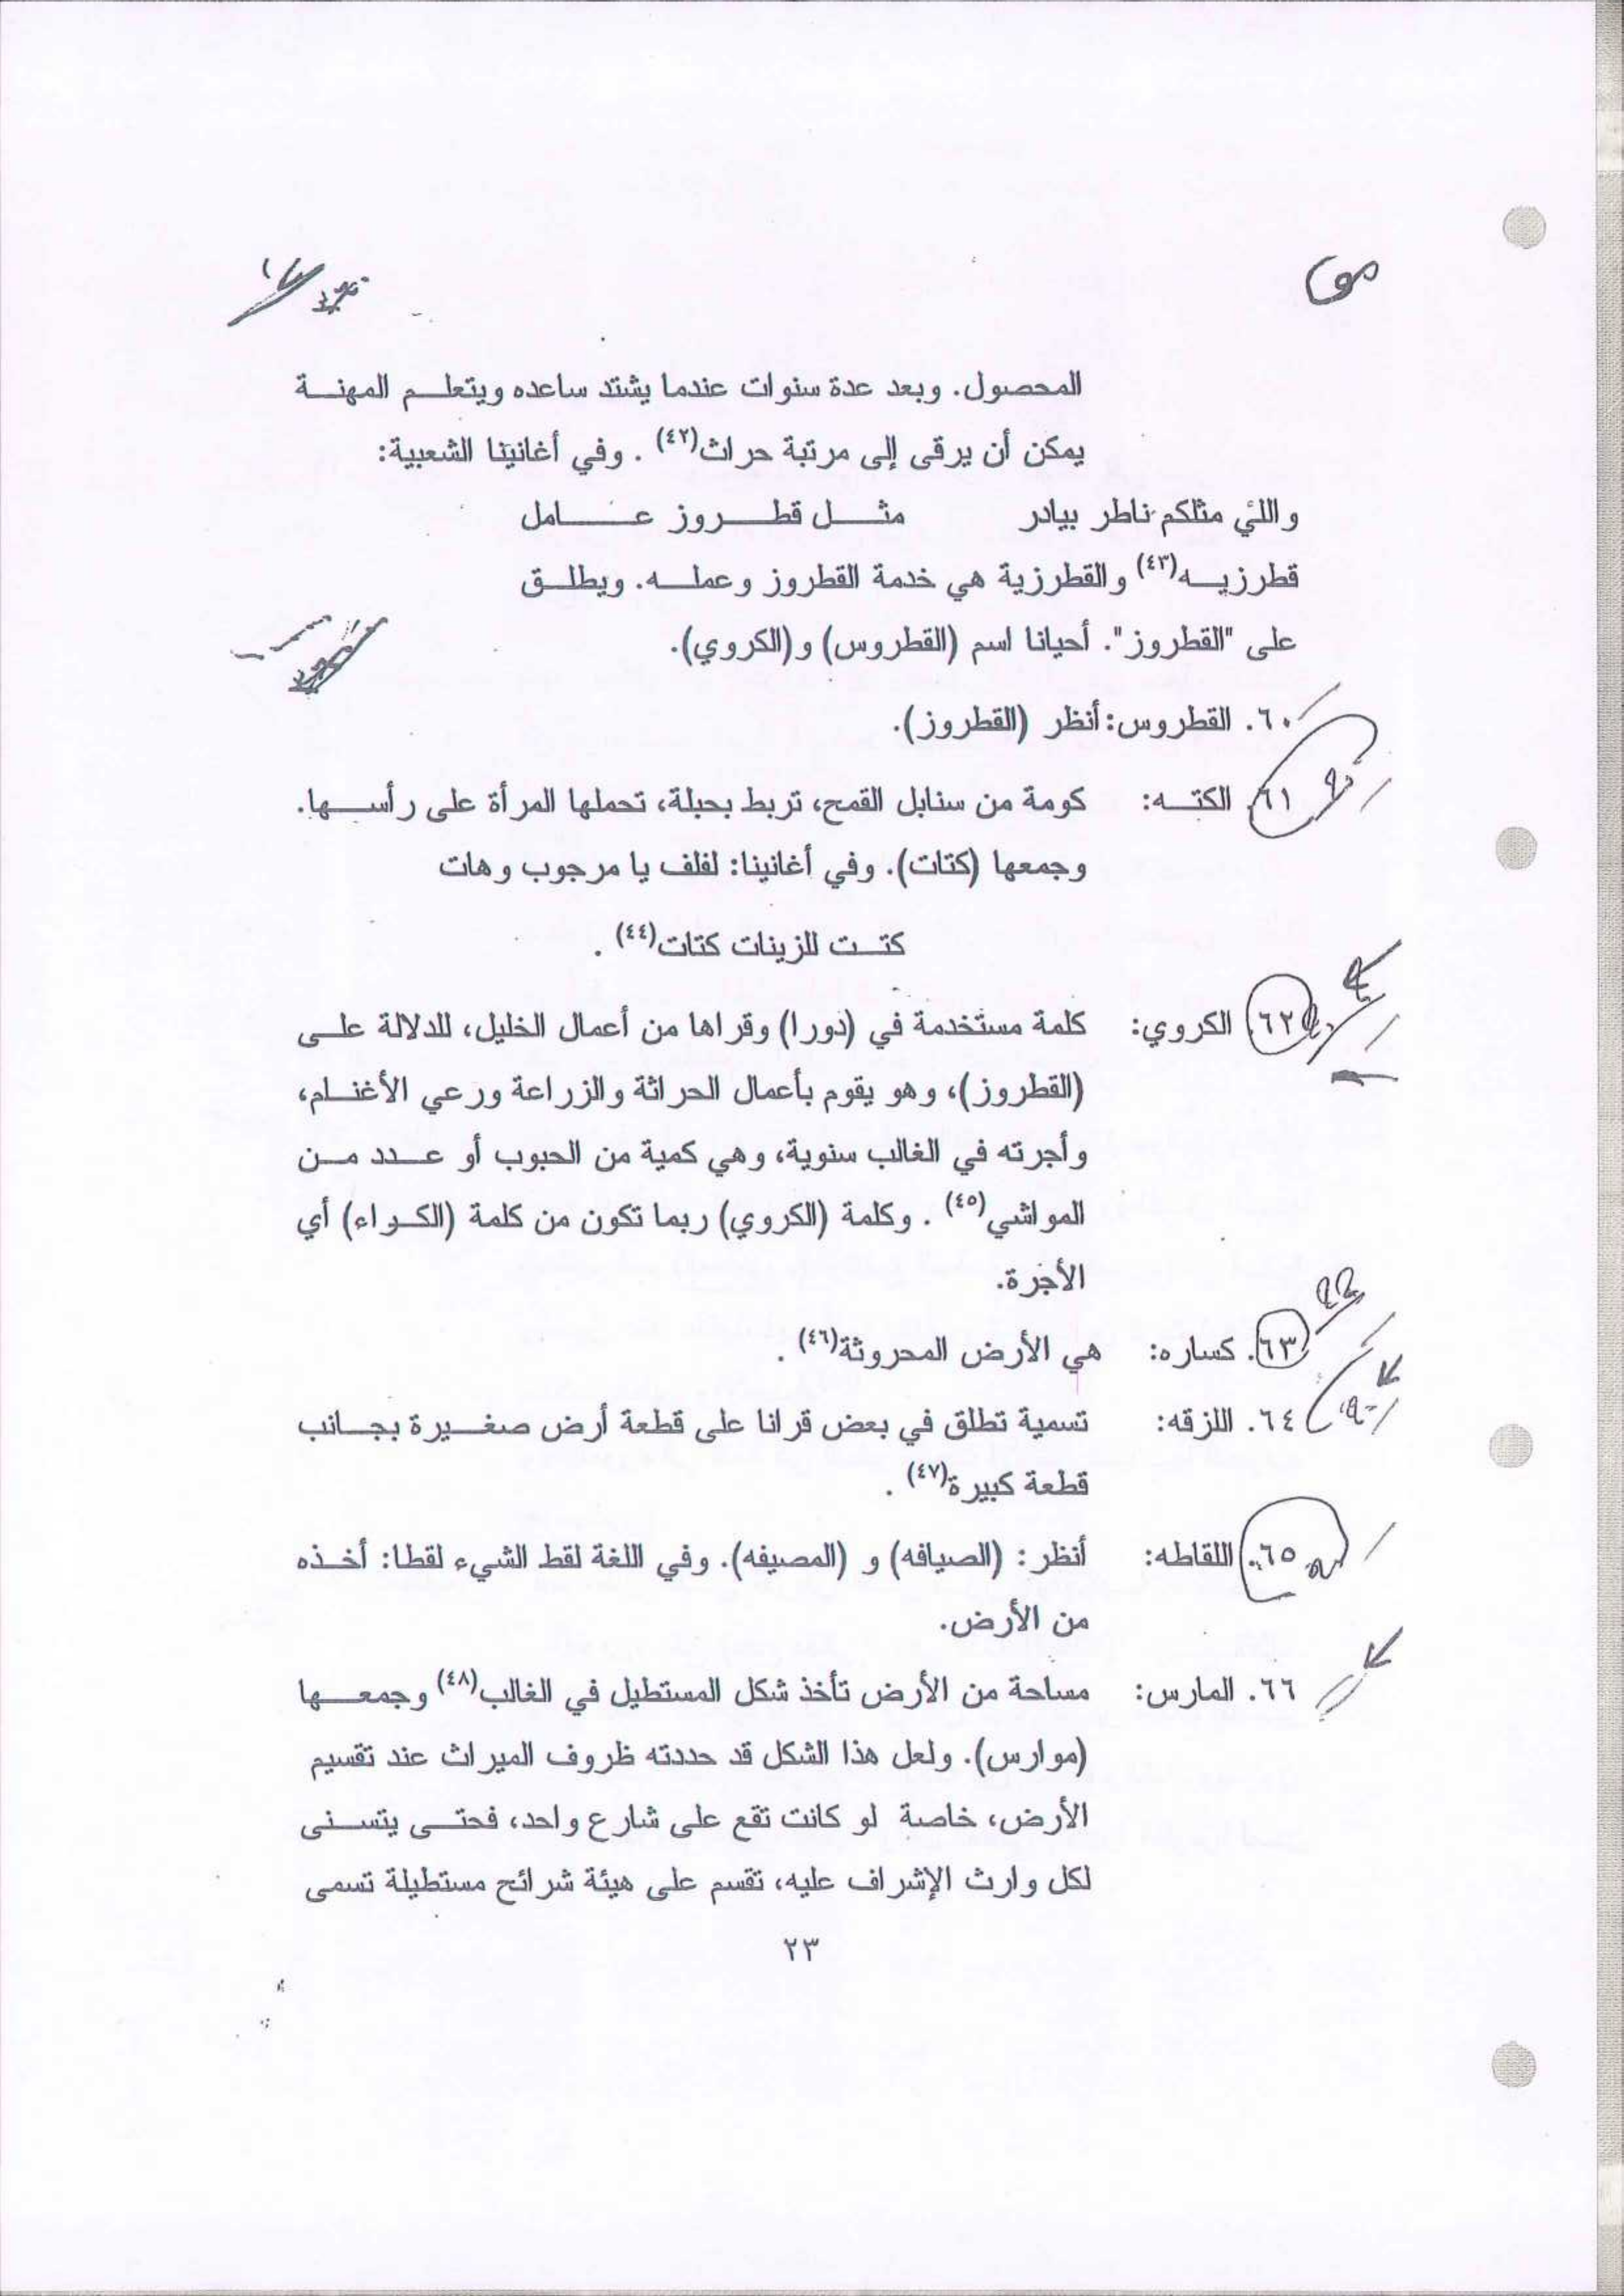 المحصول. وبعد عدة سنوات عندما يشتد ساعده ويتعلم المهنة
يمكن أن يرقى إلى مرتبة حراث(٤٢) . وفي أغانينا الشعبية:
واللي مثلكم ناطر بيادر مثل قطروز عامل
قطرزيه(٤٣) والقطرزية هي خدمة القطروز وعمله. ويطلق
على "القطروز". أحيانا اسم (القطروس) و(الكروي).
٦٠. القطروس: أنظر (القطروز).
٦١. الكته: كومة من سنابل القمح، تربط بحبلة، تحملها المرأة على رأسها.
وجمعها (كتات). وفي أغانينا: لفلف يا مرجوب وهات
كتت للزينات كتات(٤٤) .
٦٢. الكروي: كلمة مستخدمة في (دورا) وقراها من أعمال الخليل، للدلالة على
(القطروز)، وهو يقوم بأعمال الحراثة والزراعة ورعي الأغنام،
وأجرته في الغالب سنوية، وهي كمية من الحبوب أو عدد من
المواشي(٤٥) . وكلمة (الكروي) ربما تكون من كلمة (الكراء) أي
الأجرة.
٦٣. كساره: هي الأرض المحروثة(٤٦) .
٦٤. اللزقه: تسمية تطلق في بعض قرانا على قطعة أرض صغيرة بجانب
قطعة كبيرة(٤٧) .
٦٥. اللقاطه: أنظر : (الصيافه) و (المصيفه). وفي اللغة لقط الشيء لقطا: أخذه
من الأرض.
٦٦. المارس: مساحة من الأرض تأخذ شكل المستطيل في الغالب(٤٨) وجمعها
(موارس). ولعل هذا الشكل قد حددته ظروف الميراث عند تقسيم
الأرض، خاصة لو كانت تقع على شارع واحد، فحتى يتسنى
لكل وارث الإشراف عليه، تقسم على هيئة شرائح مستطيلة تسمى
٢٣